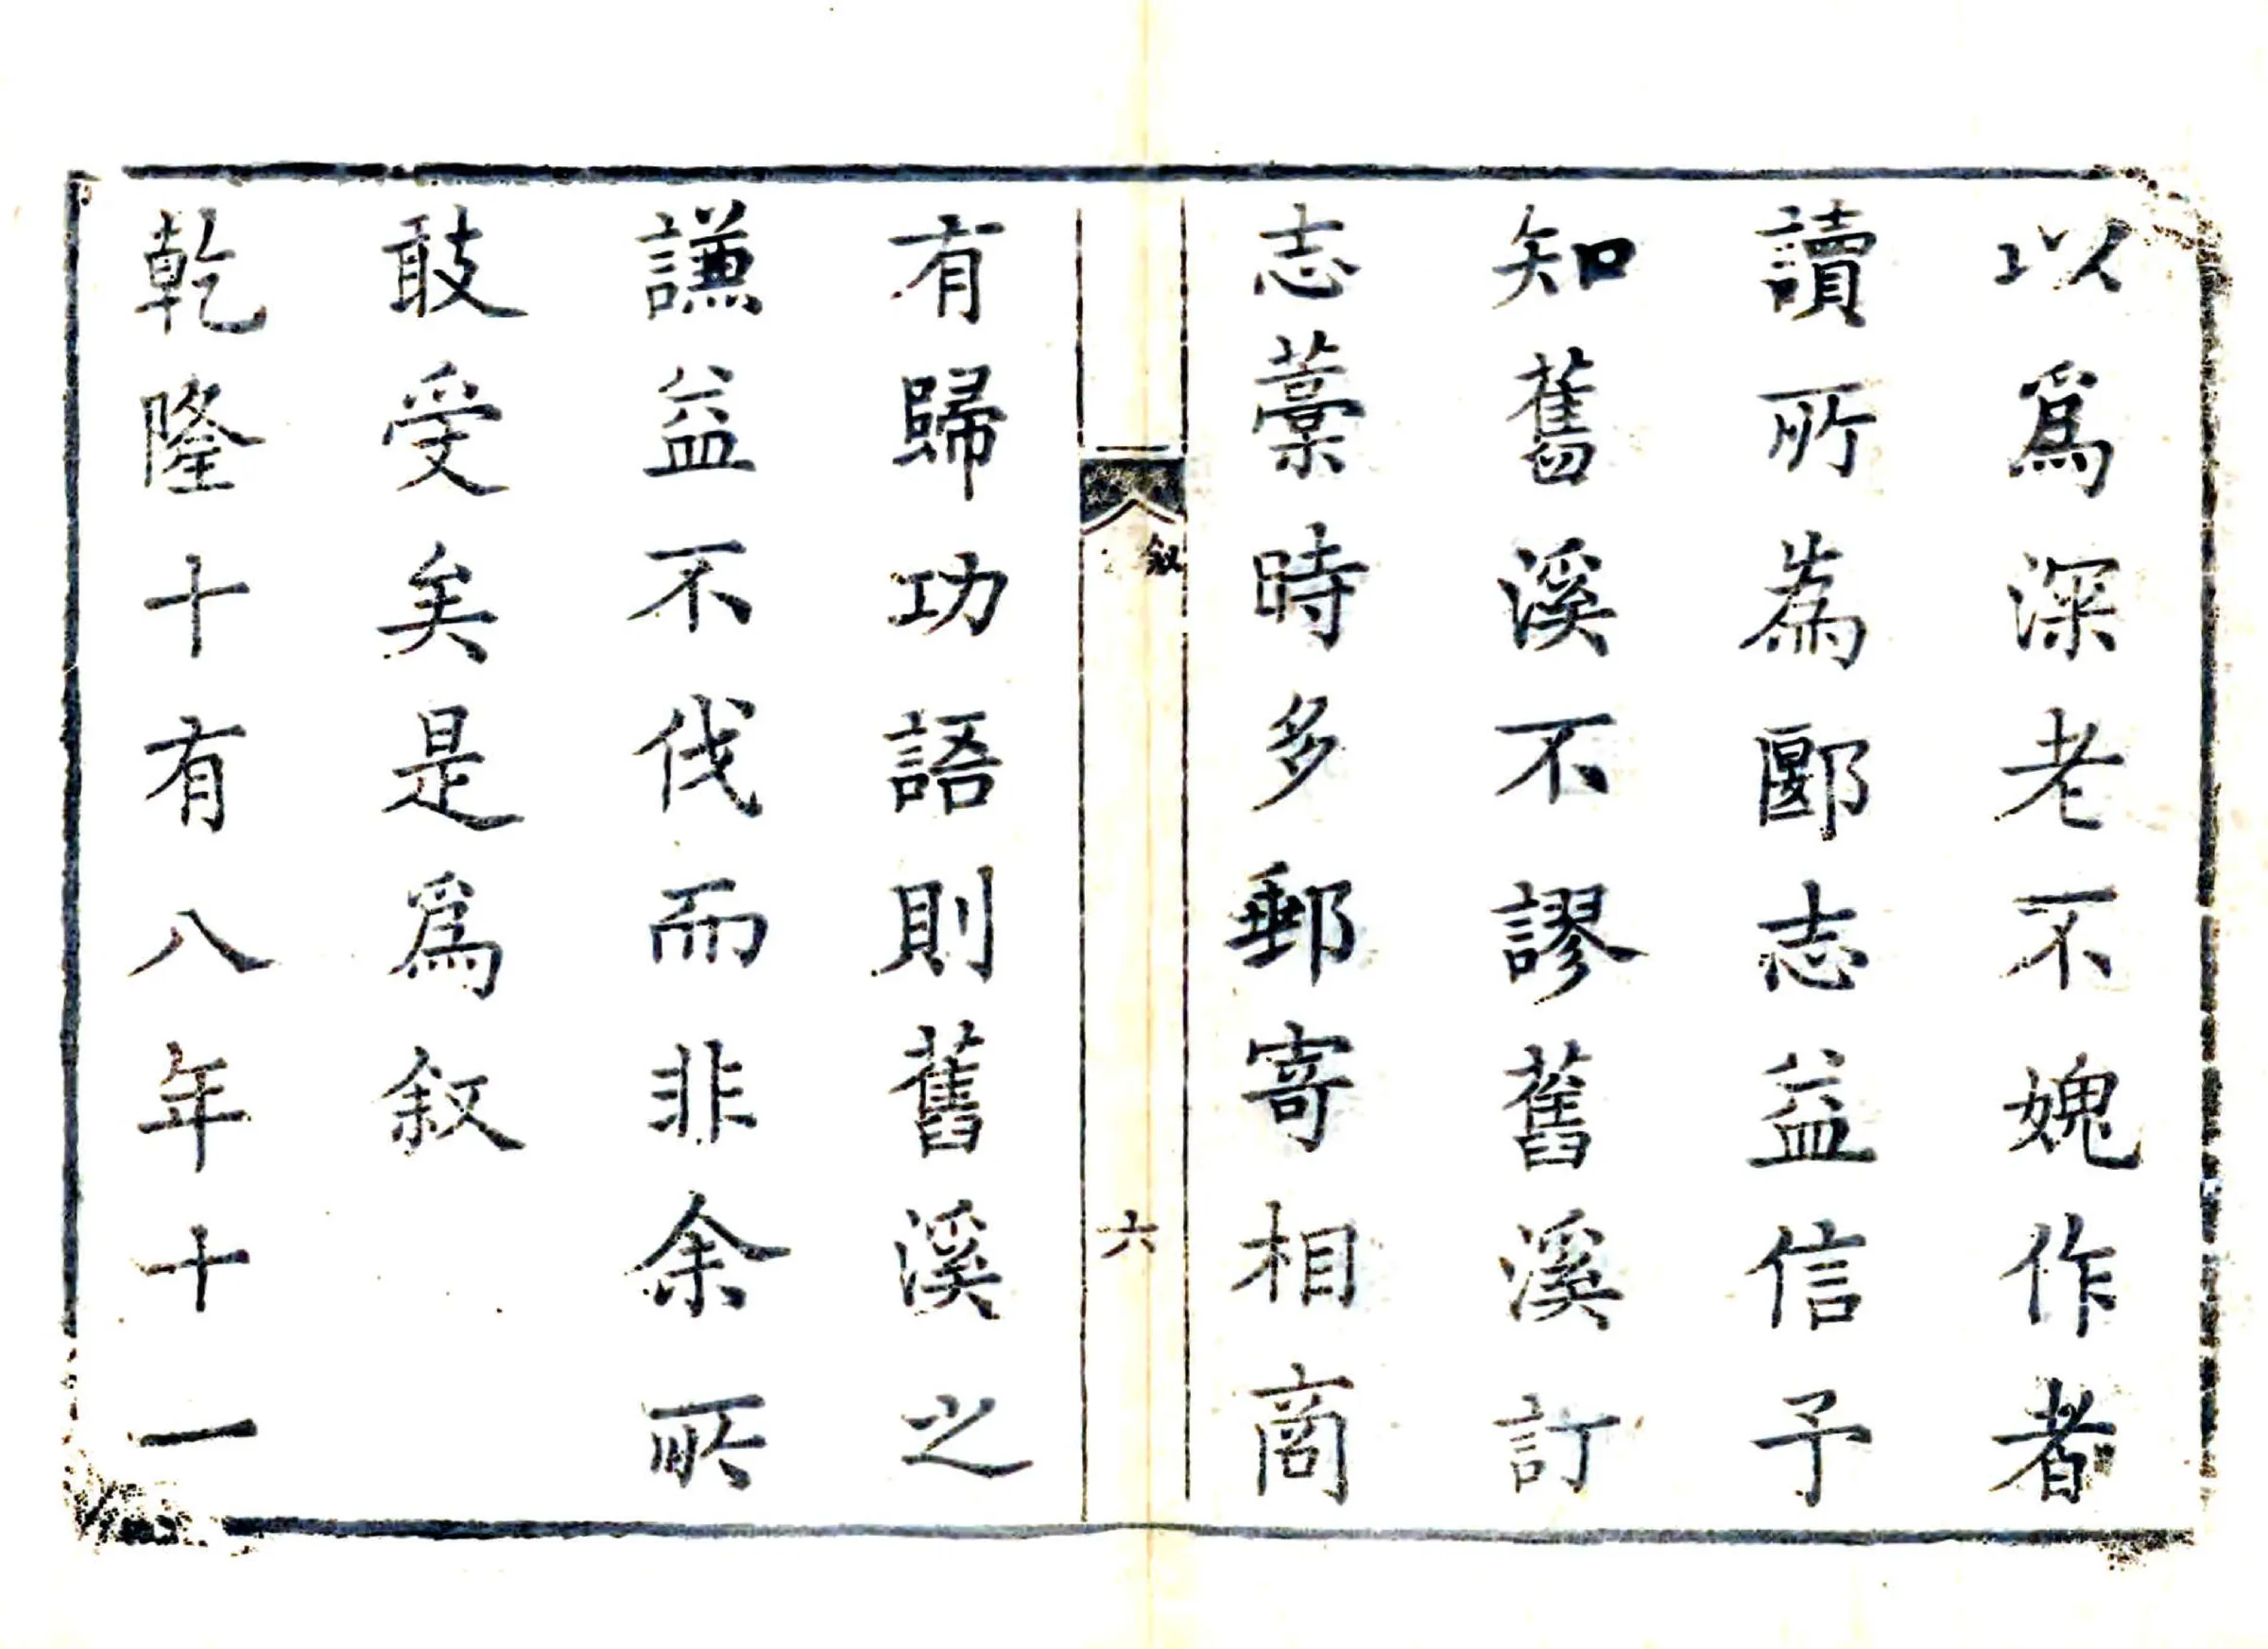 以爲深老不媿作者
讀所為郾志益信予
知舊溪不謬舊溪訂
志藳時多郵寄相商
叙
六
有歸功語則舊溪之
謙益不伐而非余所
敢受矣是爲叙
乾隆十有八年十一